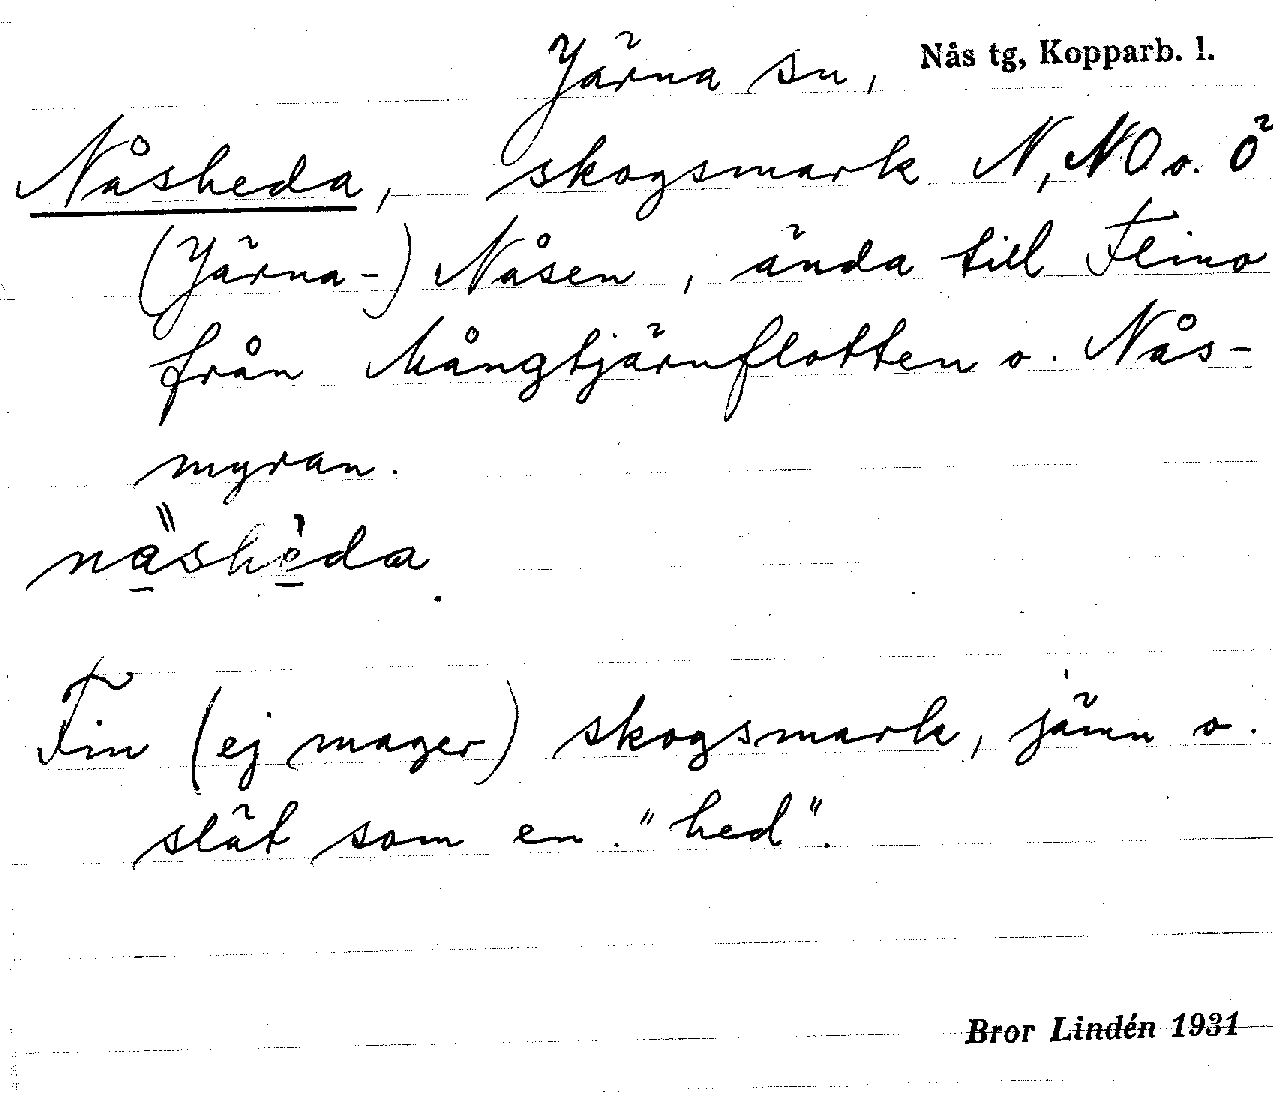 Järna sn, Nås tg, Kopparb. l.
Nåsheda, skogsmark N, NO o. Ö
(Järna-) Nåsen, ända till Flino
från Mångtjärnflotten o. Nås-
myran.
näshèda.
Fin (ej mager) skogsmark, jämn o.
slät som en "hed".
Bror Lindén 1931